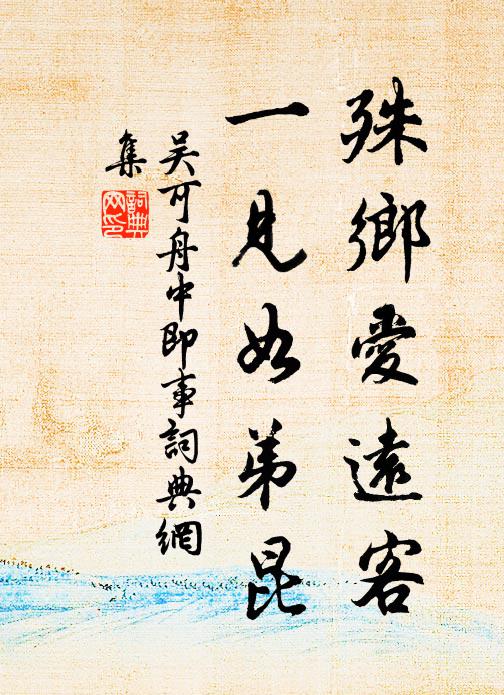 殊鄉愛遠客
一見如弟昆
吳可舟中即事詞典網
集
詞典
网印